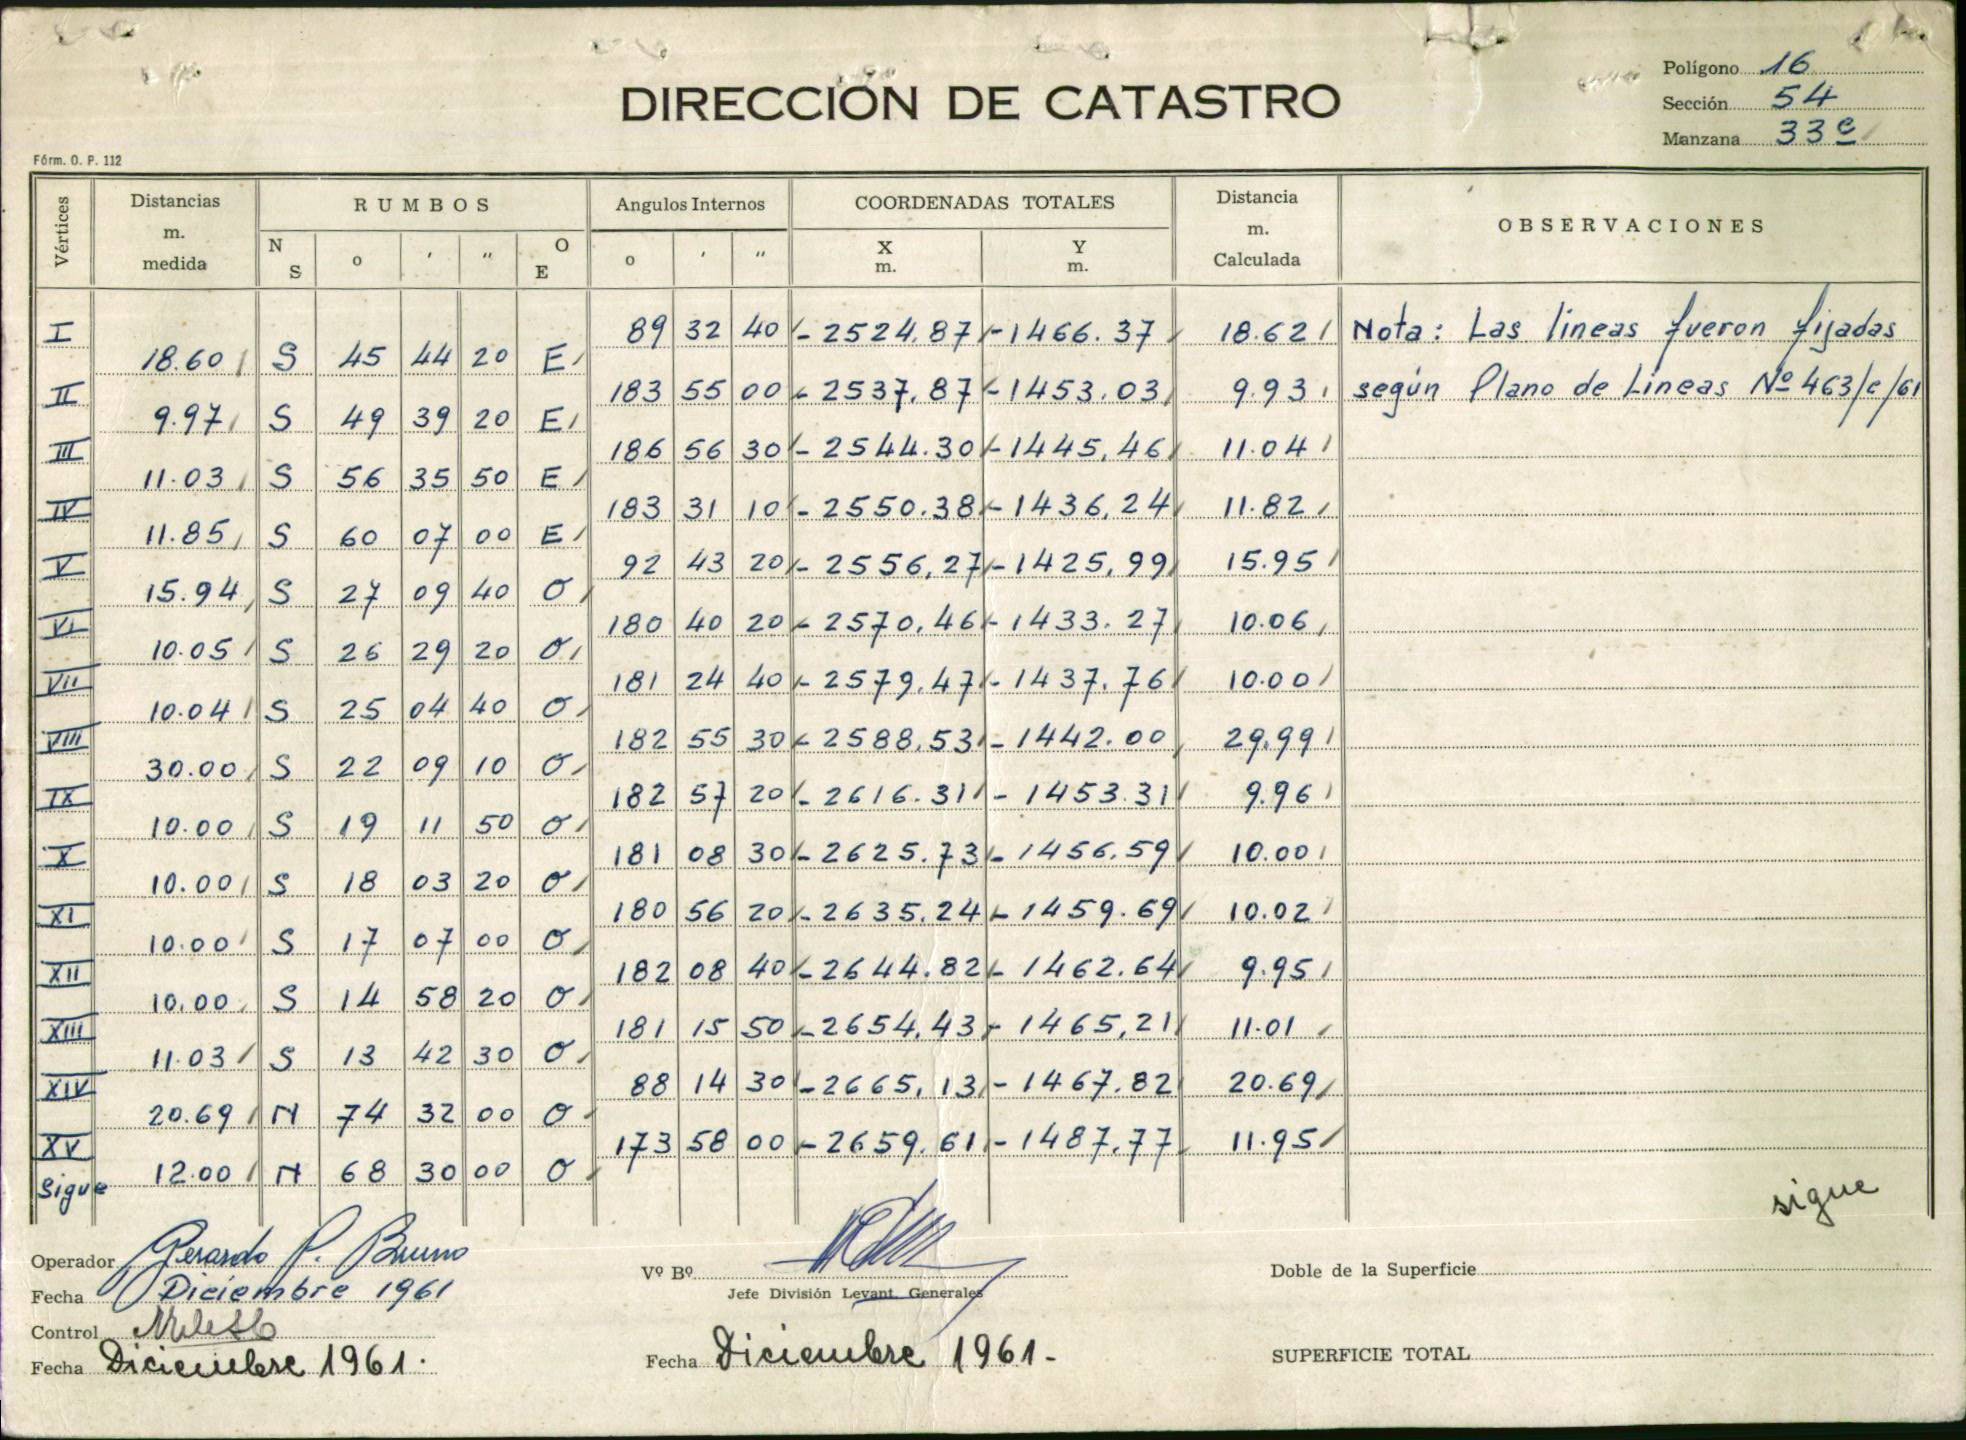 Polígono 16
DIRECCIÓN DE CATASTRO
Sección 54
Manzana 33 e
Fórm. O. P. 112
Vértices Distancias m. medida RUMBOS N S o ' " O E Angulos Internos o ' " COORDENADAS TOTALES X m. Y m. Distancia m. Calculada OBSERVACIONES
I 89 32 40 - 2524.87 - 1466.37 18.62 Nota: Las líneas fueron fijadas
18.60 S 45 44 20 E
II 183 55 00 - 2537.87 - 1453.03 9.93 según Plano de Lineas Nº 463/e/61
9.97 S 49 39 20 E
III 186 56 30 - 2544.30 - 1445.46 11.04
11.03 S 56 35 50 E
IV 183 31 10 - 2550.38 - 1436.24 11.82
11.85 S 60 07 00 E
V 92 43 20 - 2556,27 - 1425,99 15.95
15.94 S 27 09 40 O
VI 180 40 20 - 2570,46 - 1433.27 10.06
10.05 S 26 29 20 O
VII 181 24 40 - 2579.47 - 1437.76 10.00
10.04 S 25 04 40 O
VIII 182 55 30 - 2588,53 - 1442.00 29.99
30.00 S 22 09 10 O
IX 182 57 20 - 2616.31 - 1453.31 9.96
10.00 S 19 11 50 O
X 181 08 30 - 2625.73 - 1456.59 10.00
10.00 S 18 03 20 O
XI 180 56 20 - 2635.24 - 1459.69 10.02
10.00 S 17 07 00 O
XII 182 08 40 - 2644.82 - 1462.64 9.95
10.00 S 14 58 20 O
XIII 181 15 50 - 2654,43 - 1465,21 11.01
11.03 S 13 42 30 O
XIV 88 14 30 - 2665,13 - 1467.82 20.69
20.69 N 74 32 00 O
XV 173 58 00 - 2659.61 - 1487.77 11.95
Sigue 12.00 N 68 30 00 O
sigue
Operador Gerardo P. Bruno
Vº Bº
Doble de la Superficie
Fecha Diciembre 1961
Jefe División Levant. Generales
Control
Fecha Diciembre 1961.
Fecha Diciembre 1961.-
SUPERFICIE TOTAL